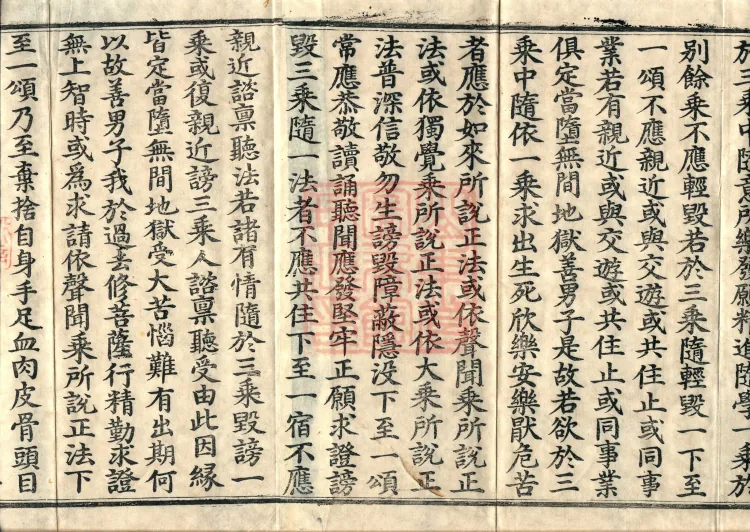 於三乘中隨意所樂發願精進隨學一乘於
別餘乘不應輕毀若於三乘隨輕毀一下至
一頌不應親近或與交遊或共住止或同事
業若有親近或與交遊或共住止或同事業
俱定當墮無間地獄善男子是故若欲於三
乘中隨依一乘求出生死欣樂安樂厭危苦
者應於如來所說正法或依聲聞乘所說正
法或依獨覺乘所說正法或依大乘所說正
法普深信敬勿生謗毀障蔽隱没下至一頌
常應恭敬讀誦聽聞應發堅牢正願求證謗
毀三乘隨一法者不應共住下至一宿不應
親近諮稟聽法若諸有情隨於三乘毀謗一
乘或復親近謗三乘人諮稟聽受由此因緣
皆定當墮無間地獄受大苦惱難有出期何
以故善男子我於過去修菩薩行精勤求證
無上智時或為求請依聲聞乘所說正法下
至一頌乃至棄捨自身手足血肉皮骨頭目